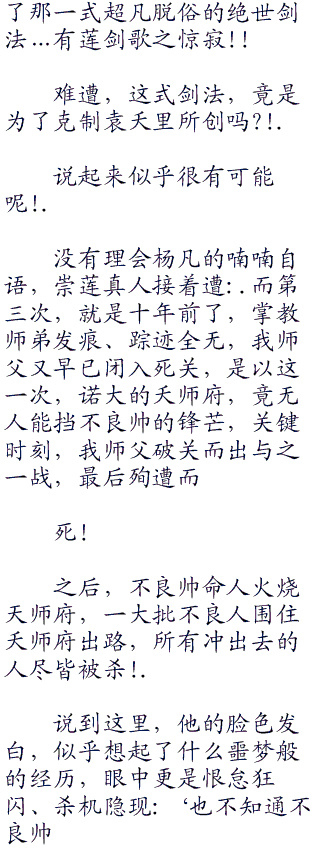 了那一式超凡脱俗的绝世剑
法…有莲剑歌之惊寂!!
难遭，这式剑法，竟是
为了克制袁天里所创吗?!.
说起来似乎很有可能
呢!.
没有理会杨凡的喃喃自
语，崇莲真人接着遭:.而第
三次，就是十年前了，掌教
师弟发痕、踪迹全无，我师
父又早已闭入死关，是以这
一次，诺大的天师府，竟无
人能挡不良帅的锋芒，关键
时刻，我师父破关而出与之
一战，最后殉遭而
死!
之后，不良帅命人火烧
天师府，一大批不良人围住
天师府出路，所有冲出去的
人尽皆被杀!.
说到这里，他的脸色发
白，似乎想起了什么噩梦般
的经历，眼中更是恨怠狂
闪、杀机隐现:‘也不知通不
良帅